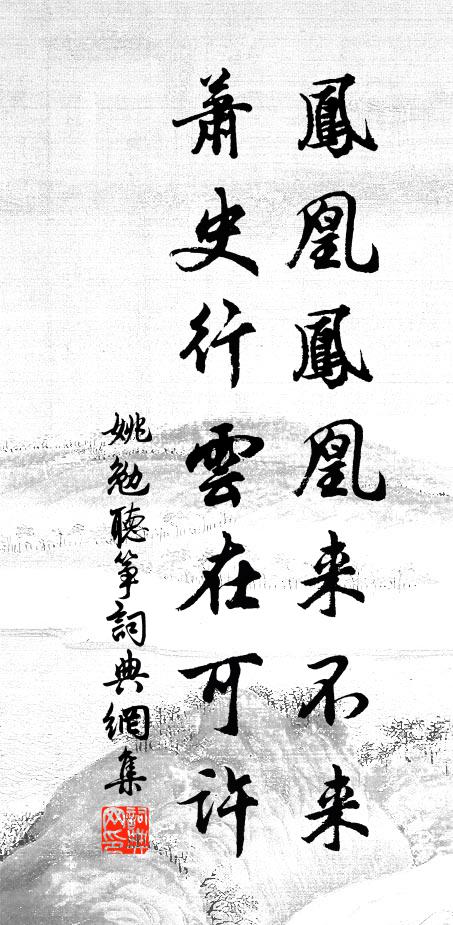 鳳凰鳳凰来不来
蕭史行雲在可許
姚勉聽箏詞典網集